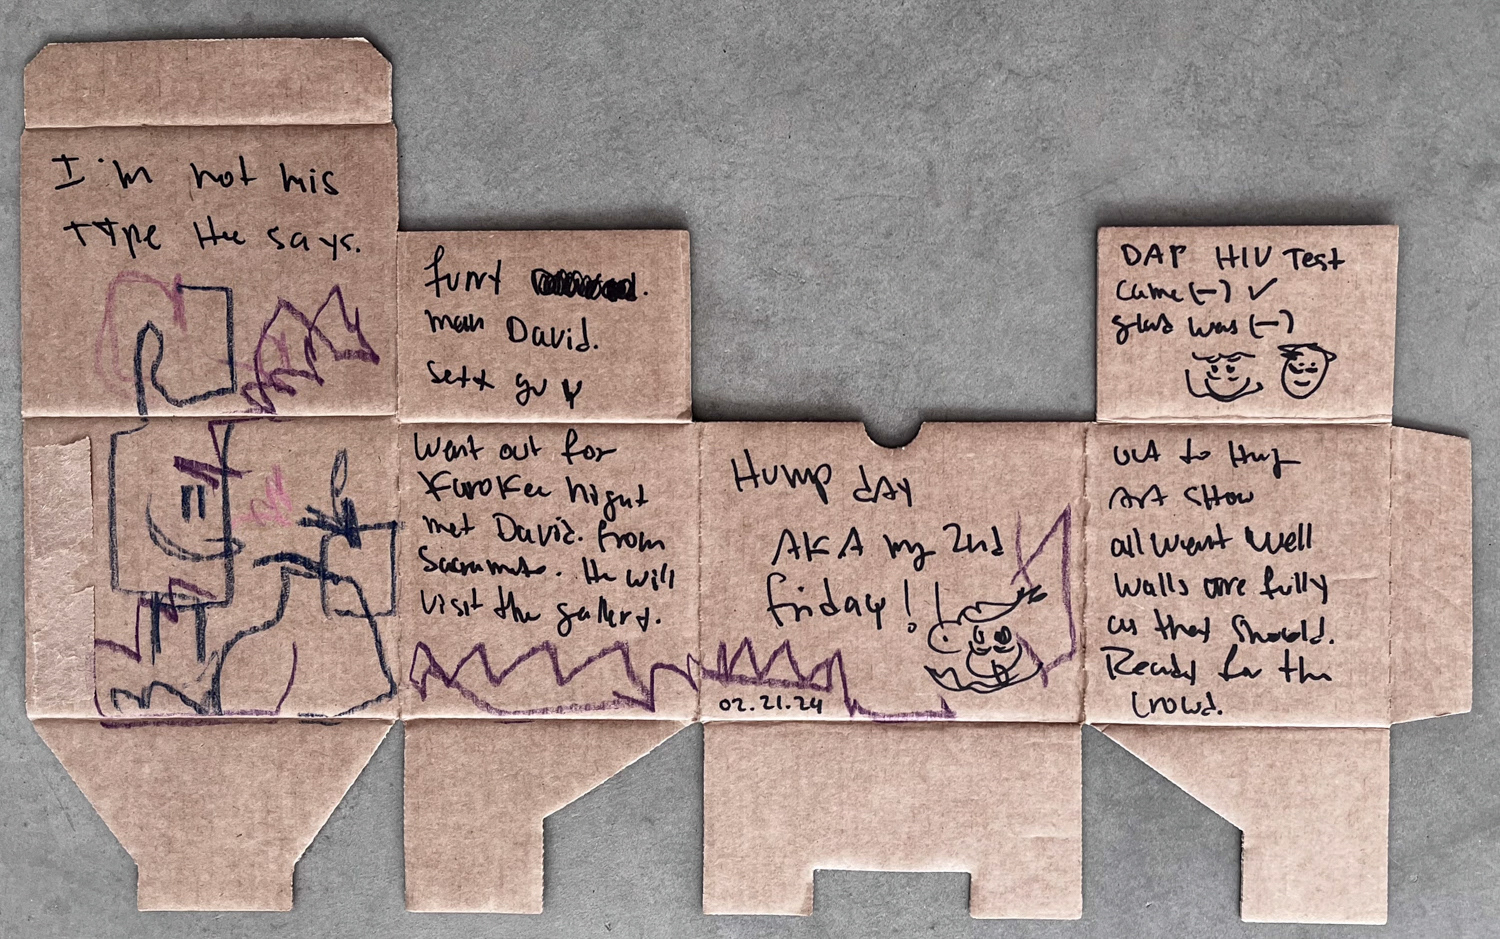 I'm not his
type He says.
funny
man David.
sexy guy
Went out for
Karokee night
met David. from
Sacramento. He will
visit the gallery.
Hump dAy
AKA my 2nd
friday!
02.21.24
DAP HIV Test
came (-) ✓
glad was (-)
out to Hang
Art Show
all went well
walls are fully
as they should.
Ready for the
crowd.